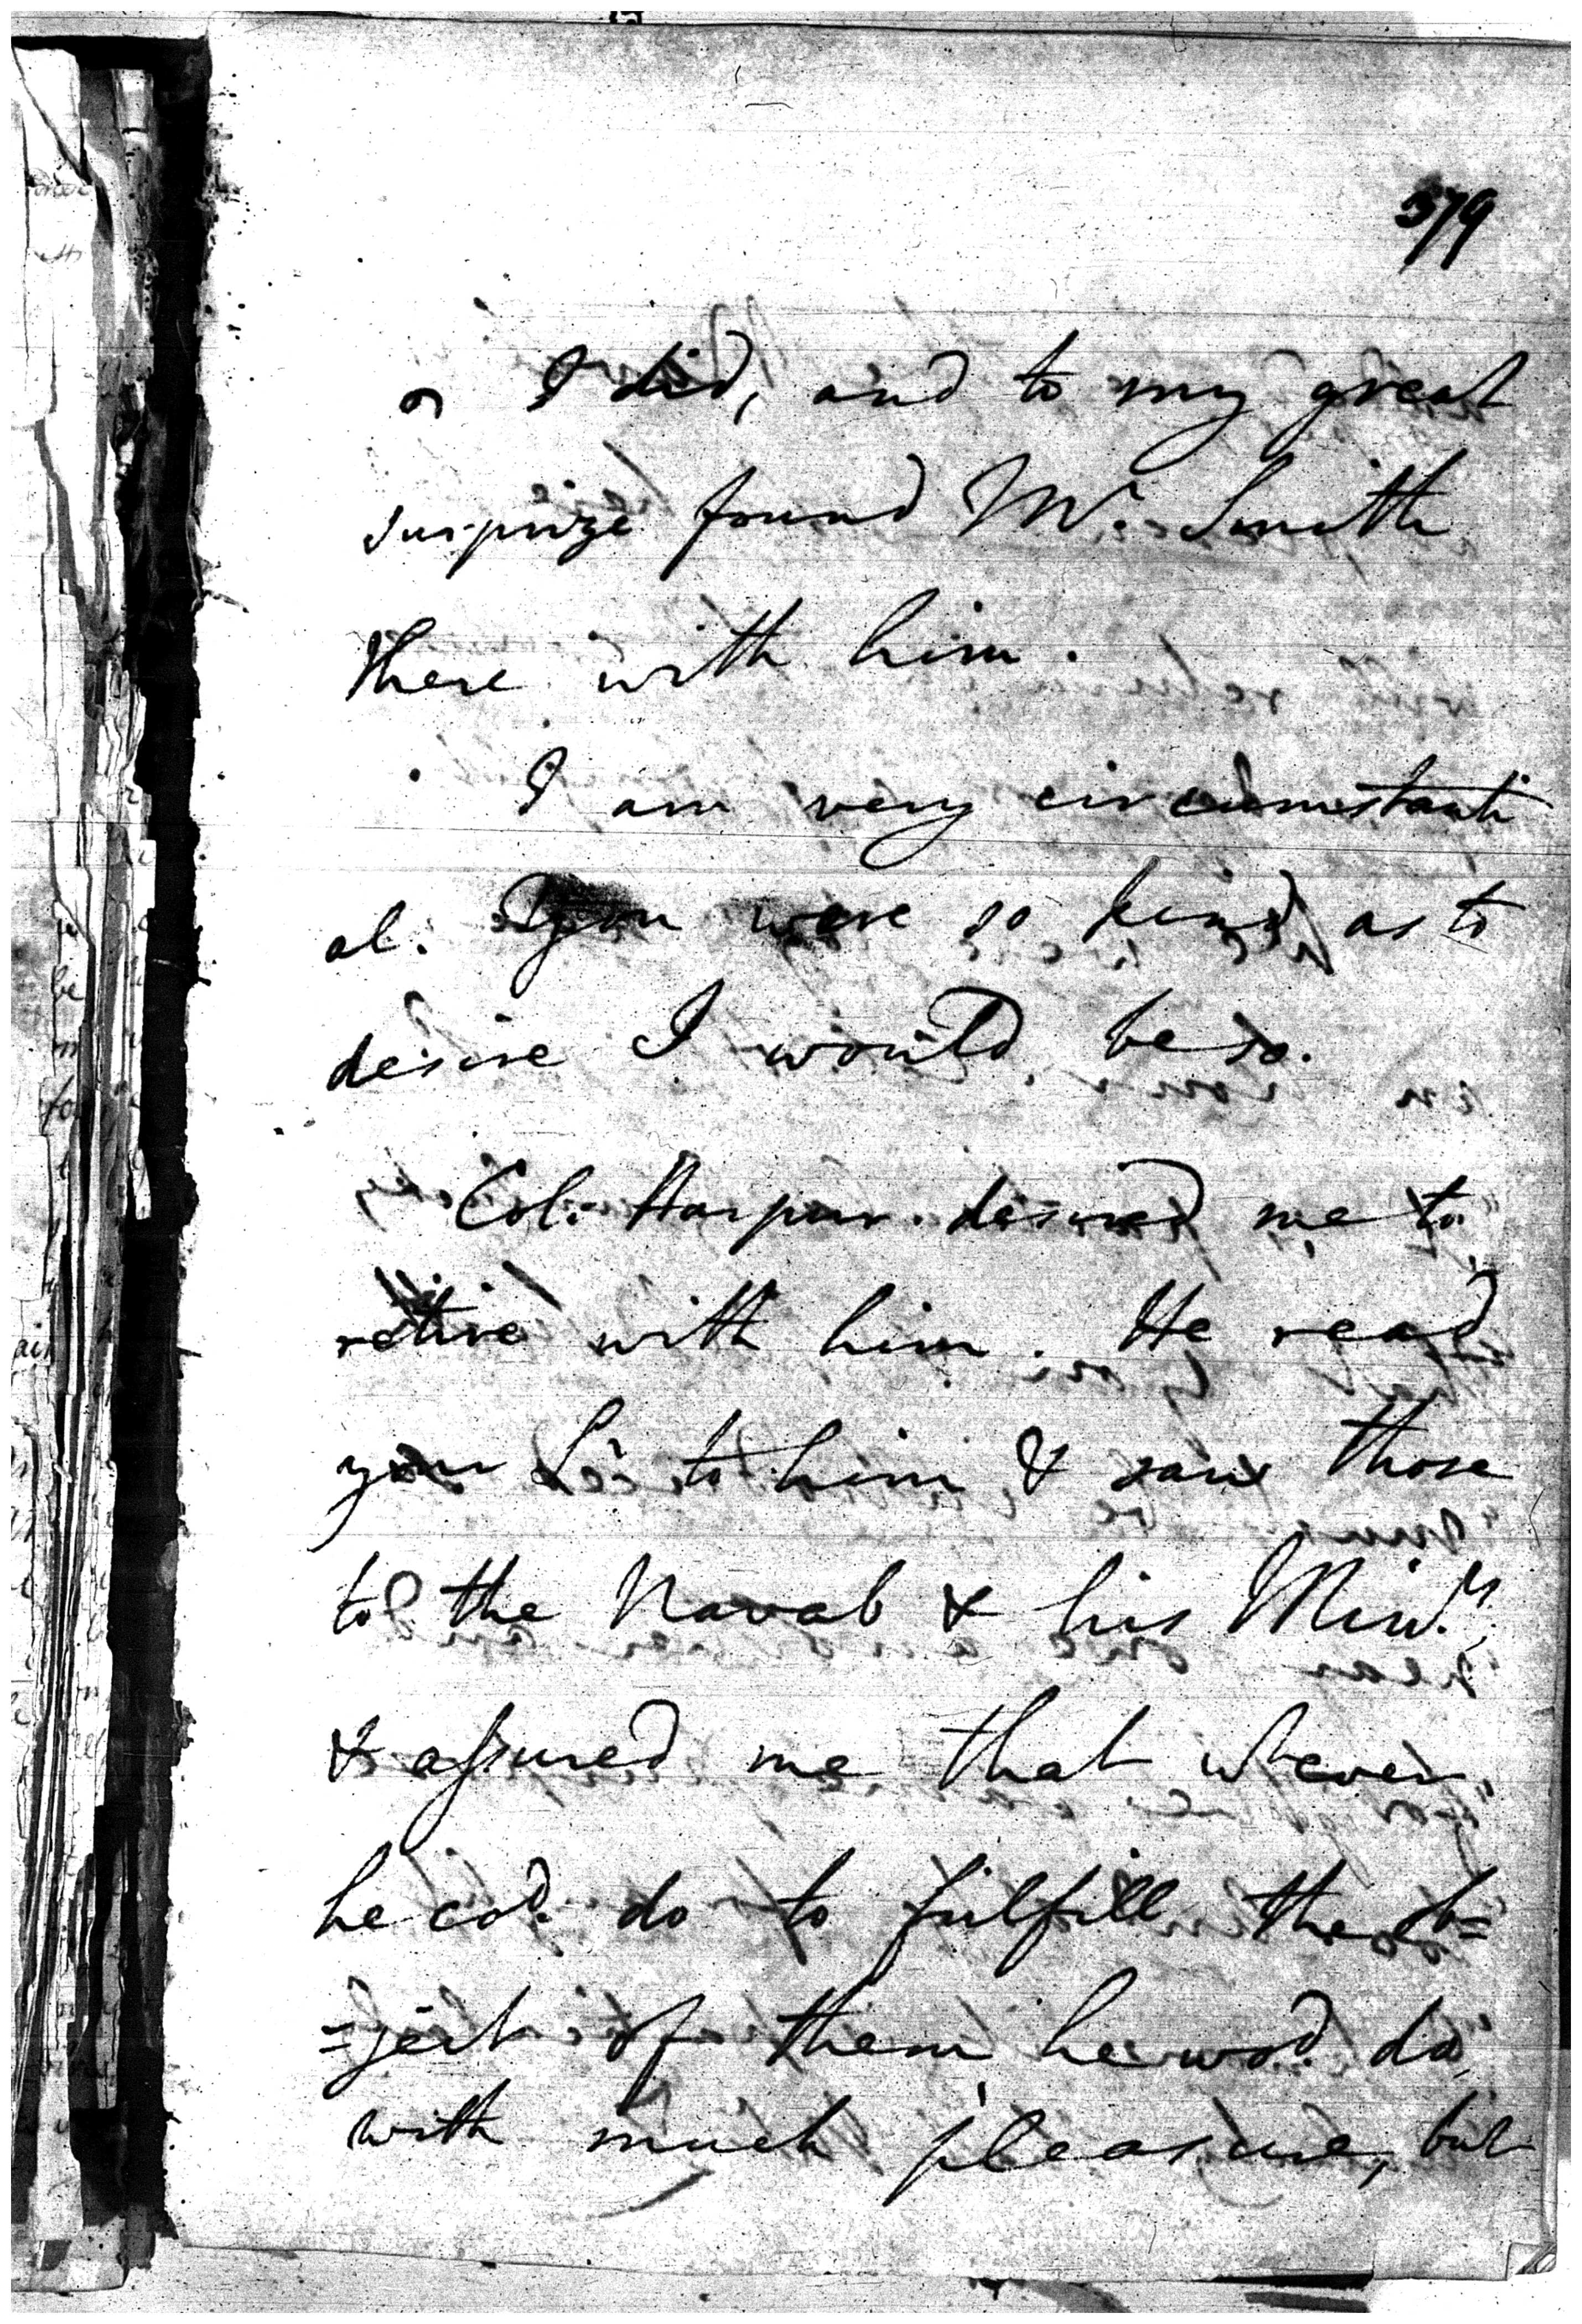 379
I did, and to my great
surprize found Mr. Smith
there with him.
I am very circumstanti
al. you were so kind as to
desire I would be so.
Col. Harpur desired me to
retire with him. He read
your Lr. to him & saw those
to the Navab & his Minr.,
& assured me that wt. ever
he cod. do to fulfill the ob=
=ject of them he wod. do
with much pleasure, but